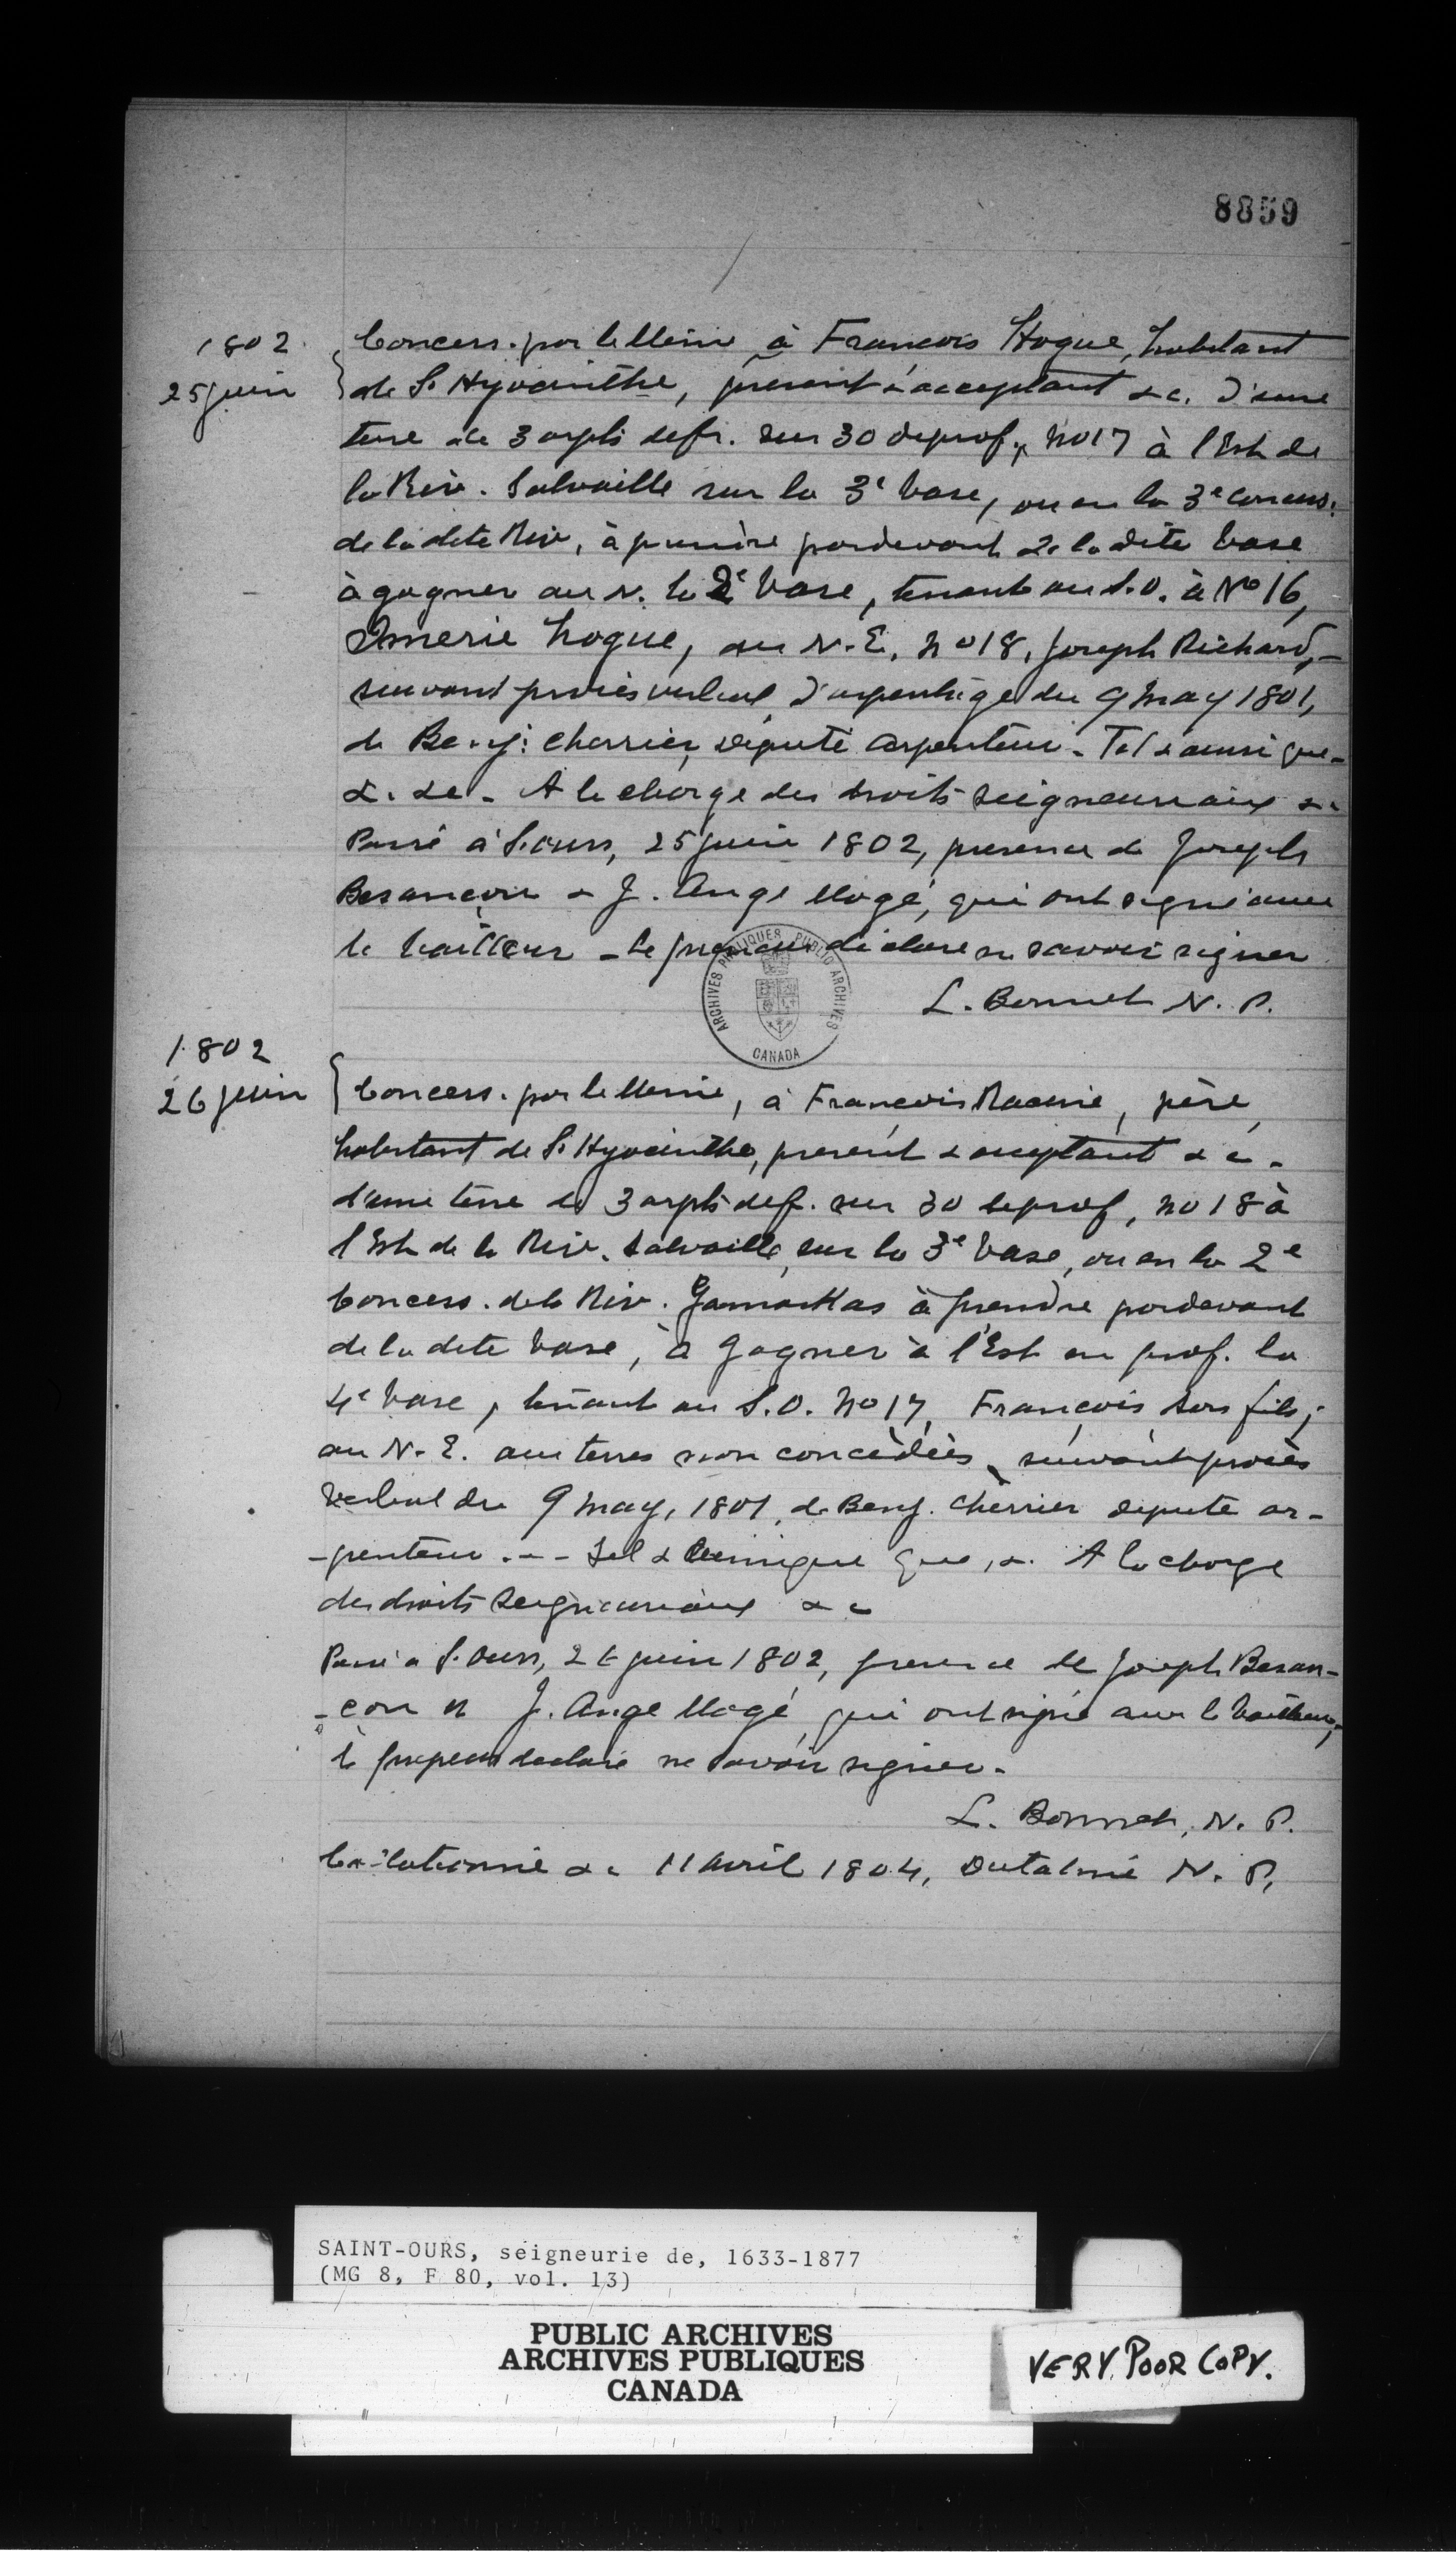 8859
1802
25 juin
Concess. par le Même à Francois Hogue, habitant
de St Hyacinthe, present & acceptant &c. D'une
terre de 3 arpts de fr. sur 30 de prof, No 17 à l'Est de
la Riv. Salvaille sur la 3e base, ou en la 3e Concess.
de la dite Riv, à prendre pardevant de la dite base
à gagner au N. la 2e base, tenant au S.O. à No 16,
Amerie hogue, au N.E. No 18, Joseph Richard,-
suivant procès verbal d'arpentage du 9 may 1801,
de Benj: Cherrier, député Arpenteur - Tel & ainsi que-
&. &c - A la charge des droits seigneuriaux &c
Passé à St. Ours, 25 juin 1802, presence de Joseph
Besancon & J. Ange Mogé, qui ont signé avec
le bailleur - le preneur déclare ne savoir signer
L. Bonnet N. P.
ARCHIVES PUBLIQUES PUBLIC ARCHIVES
CANADA
1802
26 juin
Concess. par le Même, à François Racine, père,
habitant de St Hyacinthe, present & acceptant &c -
d'une terre de 3 arpts de f. sur 30 de prof, No 18 à
l'Est de la Riv. Salvaille, sur la 3e base, ou en la 2e
Concess. de la Riv. à prendre pardevant
de la dite base, à gagner à l'Est en prof. la
4e base, tenant au S.O. No 17, François son fils;
au N.E. aux terres non concédées, suivant procès
verbal du 9 may, 1801, de Benj. Cherrier député ar-
-penteur. - - Tel & que, &. A la charge
des droits seigneuriaux &c
Passé à St. Ours, 26 juin 1802, presence de Joseph Besan-
-con & J. Ange Mogé, qui ont signé avec le bailleur,
le preneur declare ne savoir signer -
L. Bonnet, N. P.
Collationné &c 11 Avril 1804, Dutalmé N. P.
SAINT-OURS, seigneurie de, 1633-1877
(MG 8, F 80, vol. 13)
PUBLIC ARCHIVES
ARCHIVES PUBLIQUES
CANADA
VERY POOR COPY.